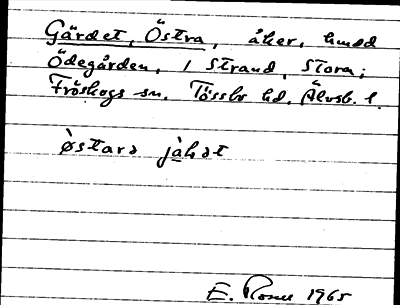 Gärdet, Östra, åker, hmod
Ödegården, 1 Strand, Stora;
Fröskogs sn. Tössbo hd. Älvsb. l.
òstara jàḥət
E. Rosu 1965